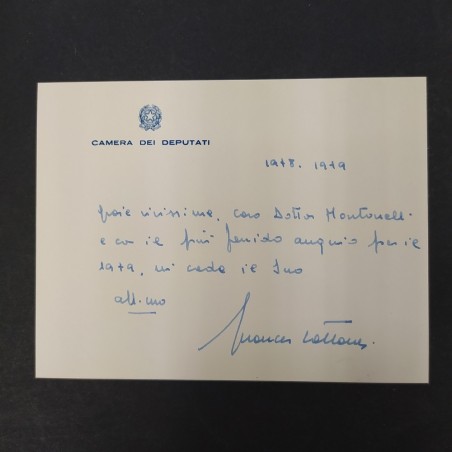 CAMERA DEI DEPUTATI
1978. 1979
grazie vivissime, caro Dottor Montanelli
e con il più fervido augurio per il
1979, mi creda il Suo
aff.mo